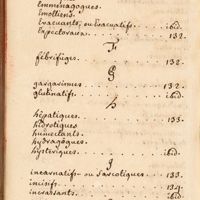 Emmenagogues.
Emolliens.
Evacuants, ou Evacuatifs. ibid.
Expectoraux. 132.
F
fébrifuges. 132.
G
gargarismes. 132.
glutinatifs. ibid.
h
hépatiques. 133.
hidrotiques.
humectans.
hydragogues.
hystériques. ibid.
J
incarnatifs ou Sarcotiques. 133.
incisifs.
incrassants. ibid.